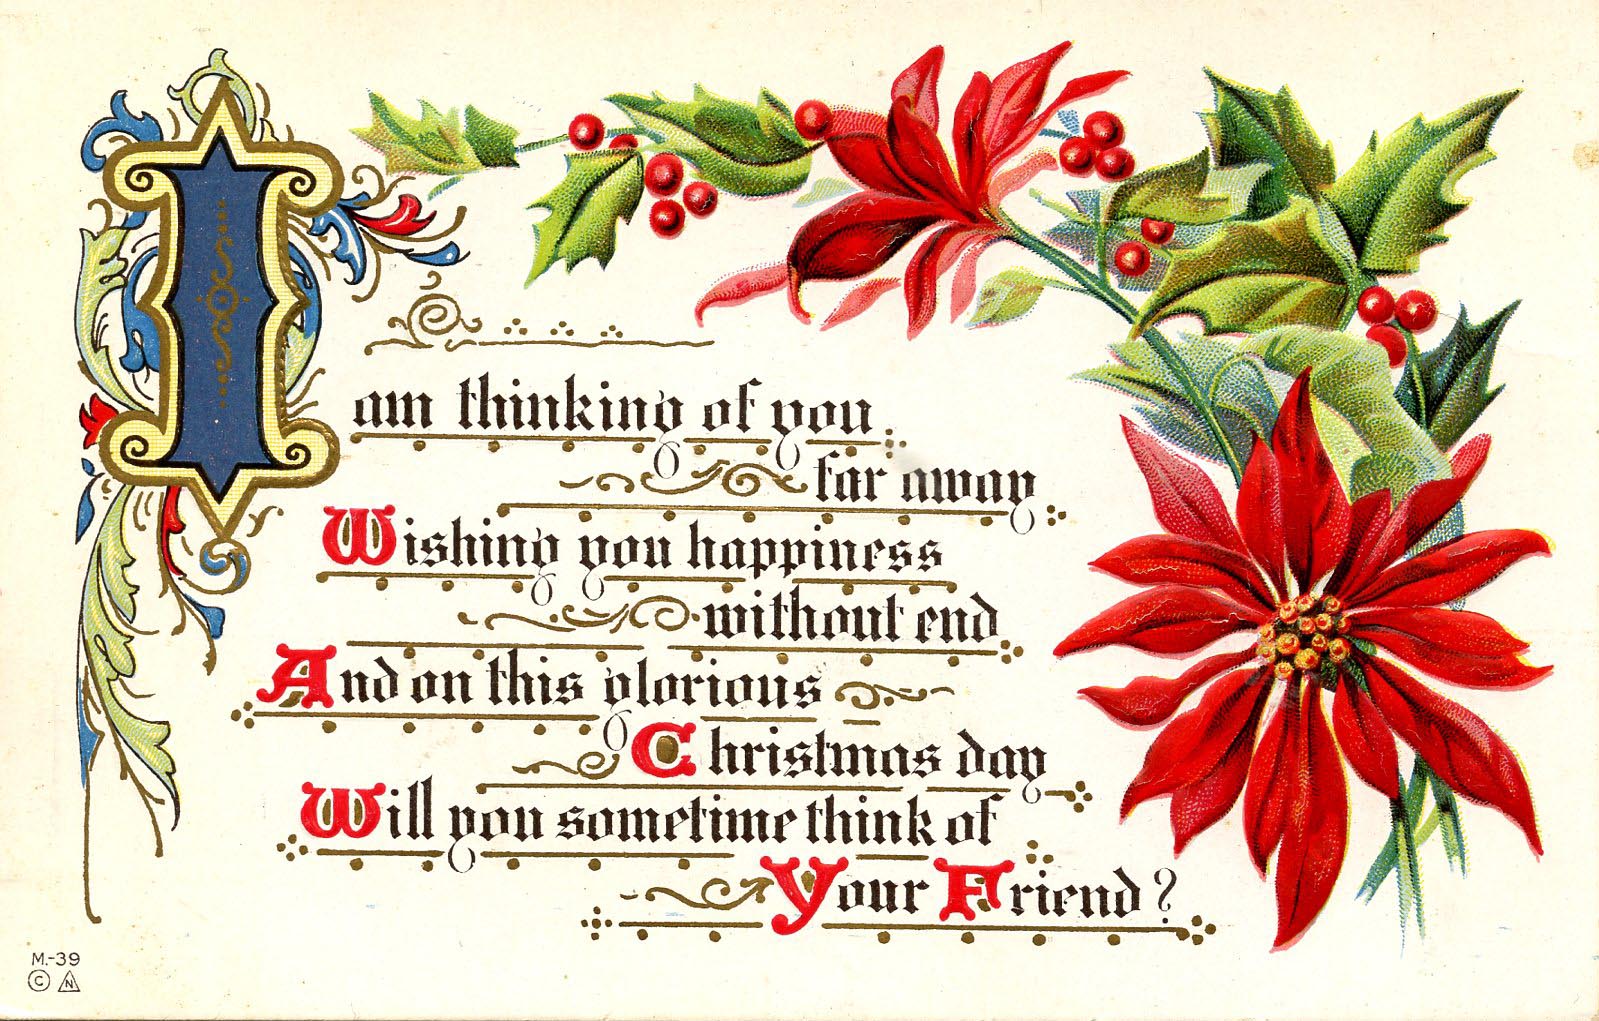 I
am thinking of you
far away
Wishing you happiness
without end
And on this glorious
Christmas day
Will you sometime think of
Your Friend?
M.-39
© N